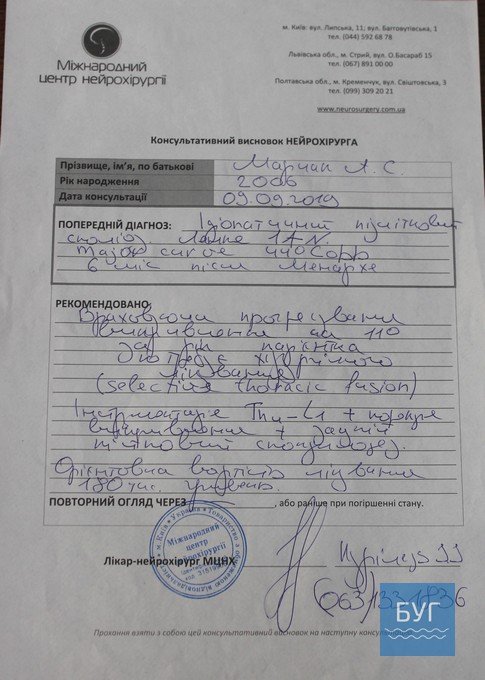 Міжнародний
центр нейрохірургії
м. Київ: вул. Липська, 11; вул. Багговутівська, 1
тел. (044) 592 68 78
Львівська обл., м. Стрий, вул. О.Басараб 15
тел. (067) 891 00 00
Полтавська обл., м. Кременчук, вул. Свіштовська, 3
тел. (099) 309 20 21
www.neurosurgery.com.ua
Консультативний висновок НЕЙРОХІРУРГА
Прізвище, ім'я, по батькові А. С.
Рік народження 2006
Дата консультації 09.09.2019
ПОПЕРЕДНІЙ ДІАГНОЗ: Ідіопатичний підлітковий
сколіоз Ленке 1AN
major curve 44° Cobb
6 міс після менархе
РЕКОМЕНДОВАНО
Враховуючи прогресування
викривлення на 11°
за рік пацієнтка
потребує хірургічного
лікування
(selective thoracic fusion)
Інструментація L1 + корекція
викривлення + задній
спондилодез.
Орієнтовна вартість лікування
180 тис. гривень.
ПОВТОРНИЙ ОГЛЯД ЧЕРЕЗ , або раніше при погіршенні стану.
Міжнародний
центр
нейрохірургії
Лікар-нейрохірург МЦНХ
БУГ
Прохання взяти з собою цей консультативний висновок на наступну